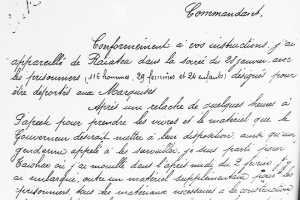 Commandant,
Conformement a vos instructions, j'ai
appareillé de Raiatea dans la soirée du 28 janvier avec
les prisonniers (115 hommes, 29 femmes et 24 enfants) designés pour
être déportés aux Marquises.
Après un relache de quelques heures à
Papeete pour prendre les vivres et le materiel que le
Gouverneur desirait mettre à leur disposition, ainsi qu'un
gendarme appelé à les surveiller, je suis parti pour
Taiohae où j'ai mouillé dans l'après midi du 2 fevrier. J'y
ai embarqué, outre un materiel supplementaire pour les
prisonniers tous les materiaux necessaires a la construction